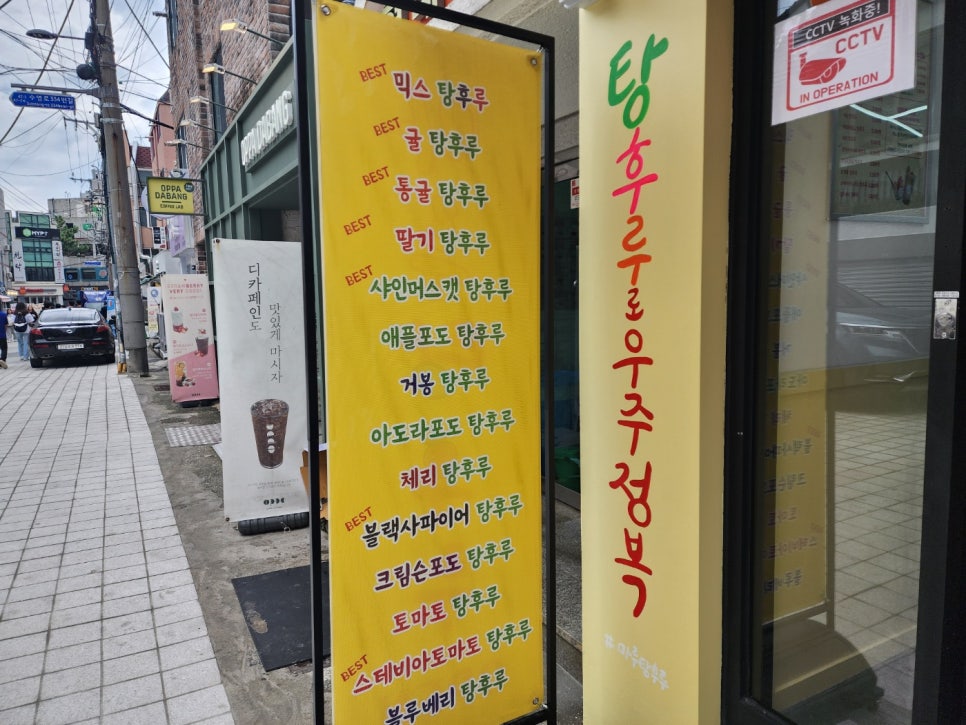 BEST
믹스 탕후루
BEST
귤 탕후루
BEST
통귤 탕후루
BEST
딸기 탕후루
BEST
샤인머스캣 탕후루
애플포도 탕후루
거봉 탕후루
아도라포도 탕후루
체리 탕후루
BEST
블랙사파이어 탕후루
크림슨포도 탕후루
토마토 탕후루
BEST
스테비아토마토 탕후루
블루베리 탕후루
탕후루로우주정복
CCTV 녹화중!
CCTV
IN OPERATION
OPPA DABANG
OPPA
DABANG
COFFEE LAB
디카페인도
맛있게 마시자
수영로334번길